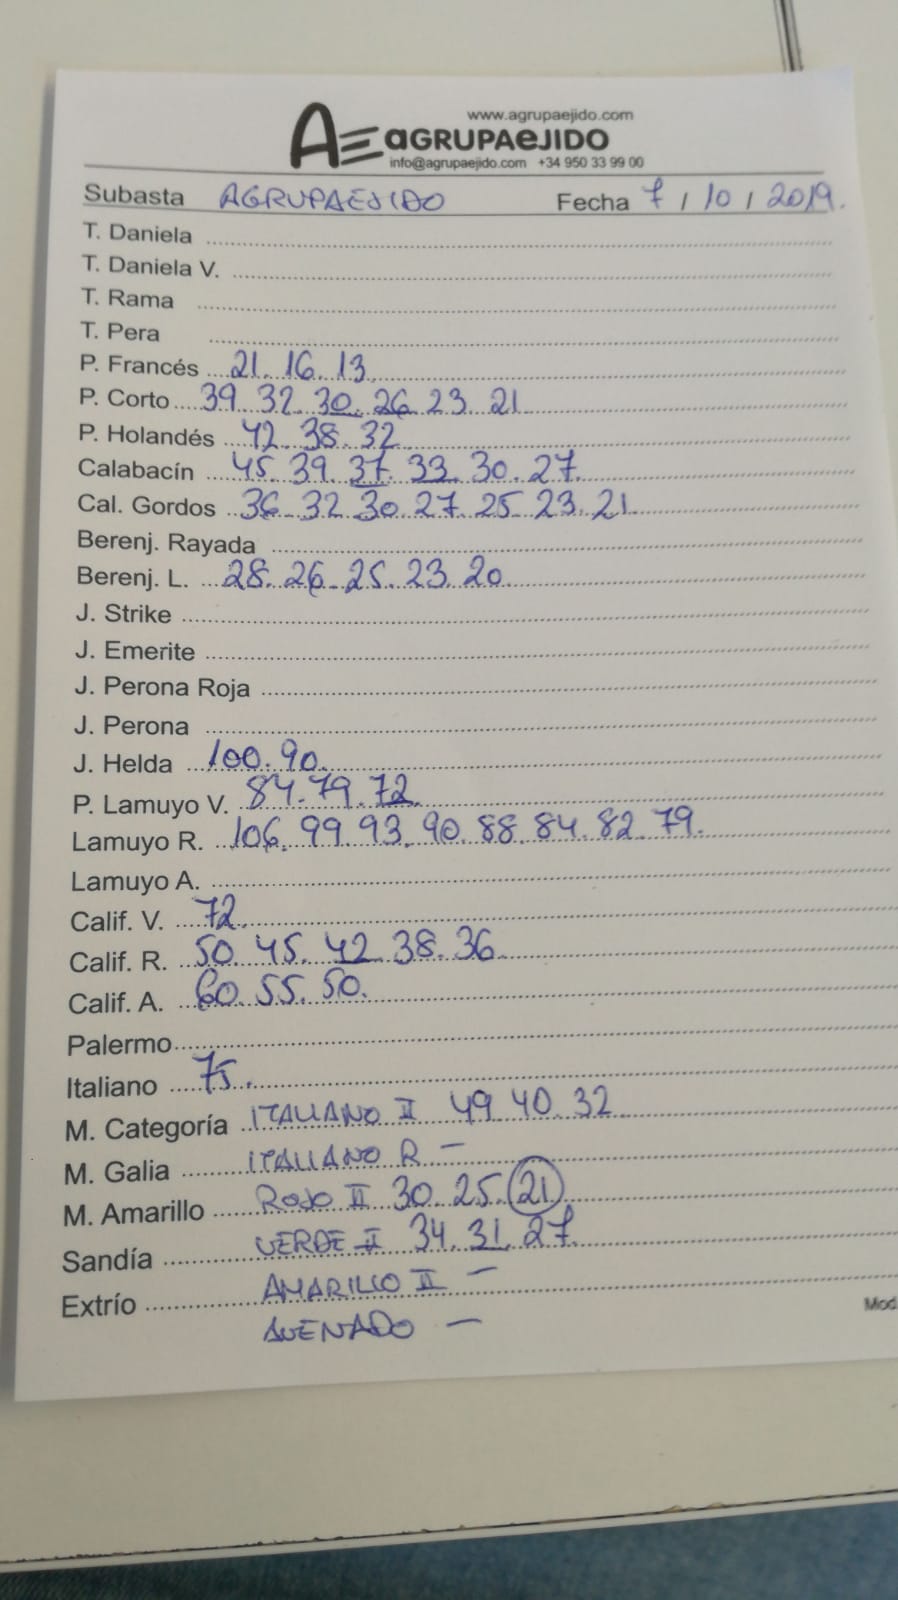 www.agrupaejido.com
AE aGRUPAeJIDO
info@agrupaejido.com +34 950 33 99 00
Subasta AGRUPAEJIDO Fecha 7 / 10 / 2019.
T. Daniela
T. Daniela V.
T. Rama
T. Pera
P. Francés 21. 16. 13
P. Corto 39. 32. 30. 26. 23. 21
P. Holandés 42. 38. 32
Calabacín 45. 39. 37. 33. 30. 27.
Cal. Gordos 36. 32. 30. 27. 25. 23. 21
Berenj. Rayada
Berenj. L. 28. 26. 25. 23. 20
J. Strike
J. Emerite
J. Perona Roja
J. Perona
J. Helda 100. 90.
P. Lamuyo V. 84. 79. 72
Lamuyo R. 106. 99. 93. 90. 88. 84. 82. 79.
Lamuyo A.
Calif. V. 72
Calif. R. 50. 45. 42. 38. 36
Calif. A. 60. 55. 50.
Palermo
Italiano 75.
M. Categoría ITALIANO II 49 40. 32
M. Galia ITALIANO R —
M. Amarillo ROJO II 30. 25. 21
Sandía VERDE II 34. 31. 27.
Extrío AMARILLO II —
AVENADO —
Mod.